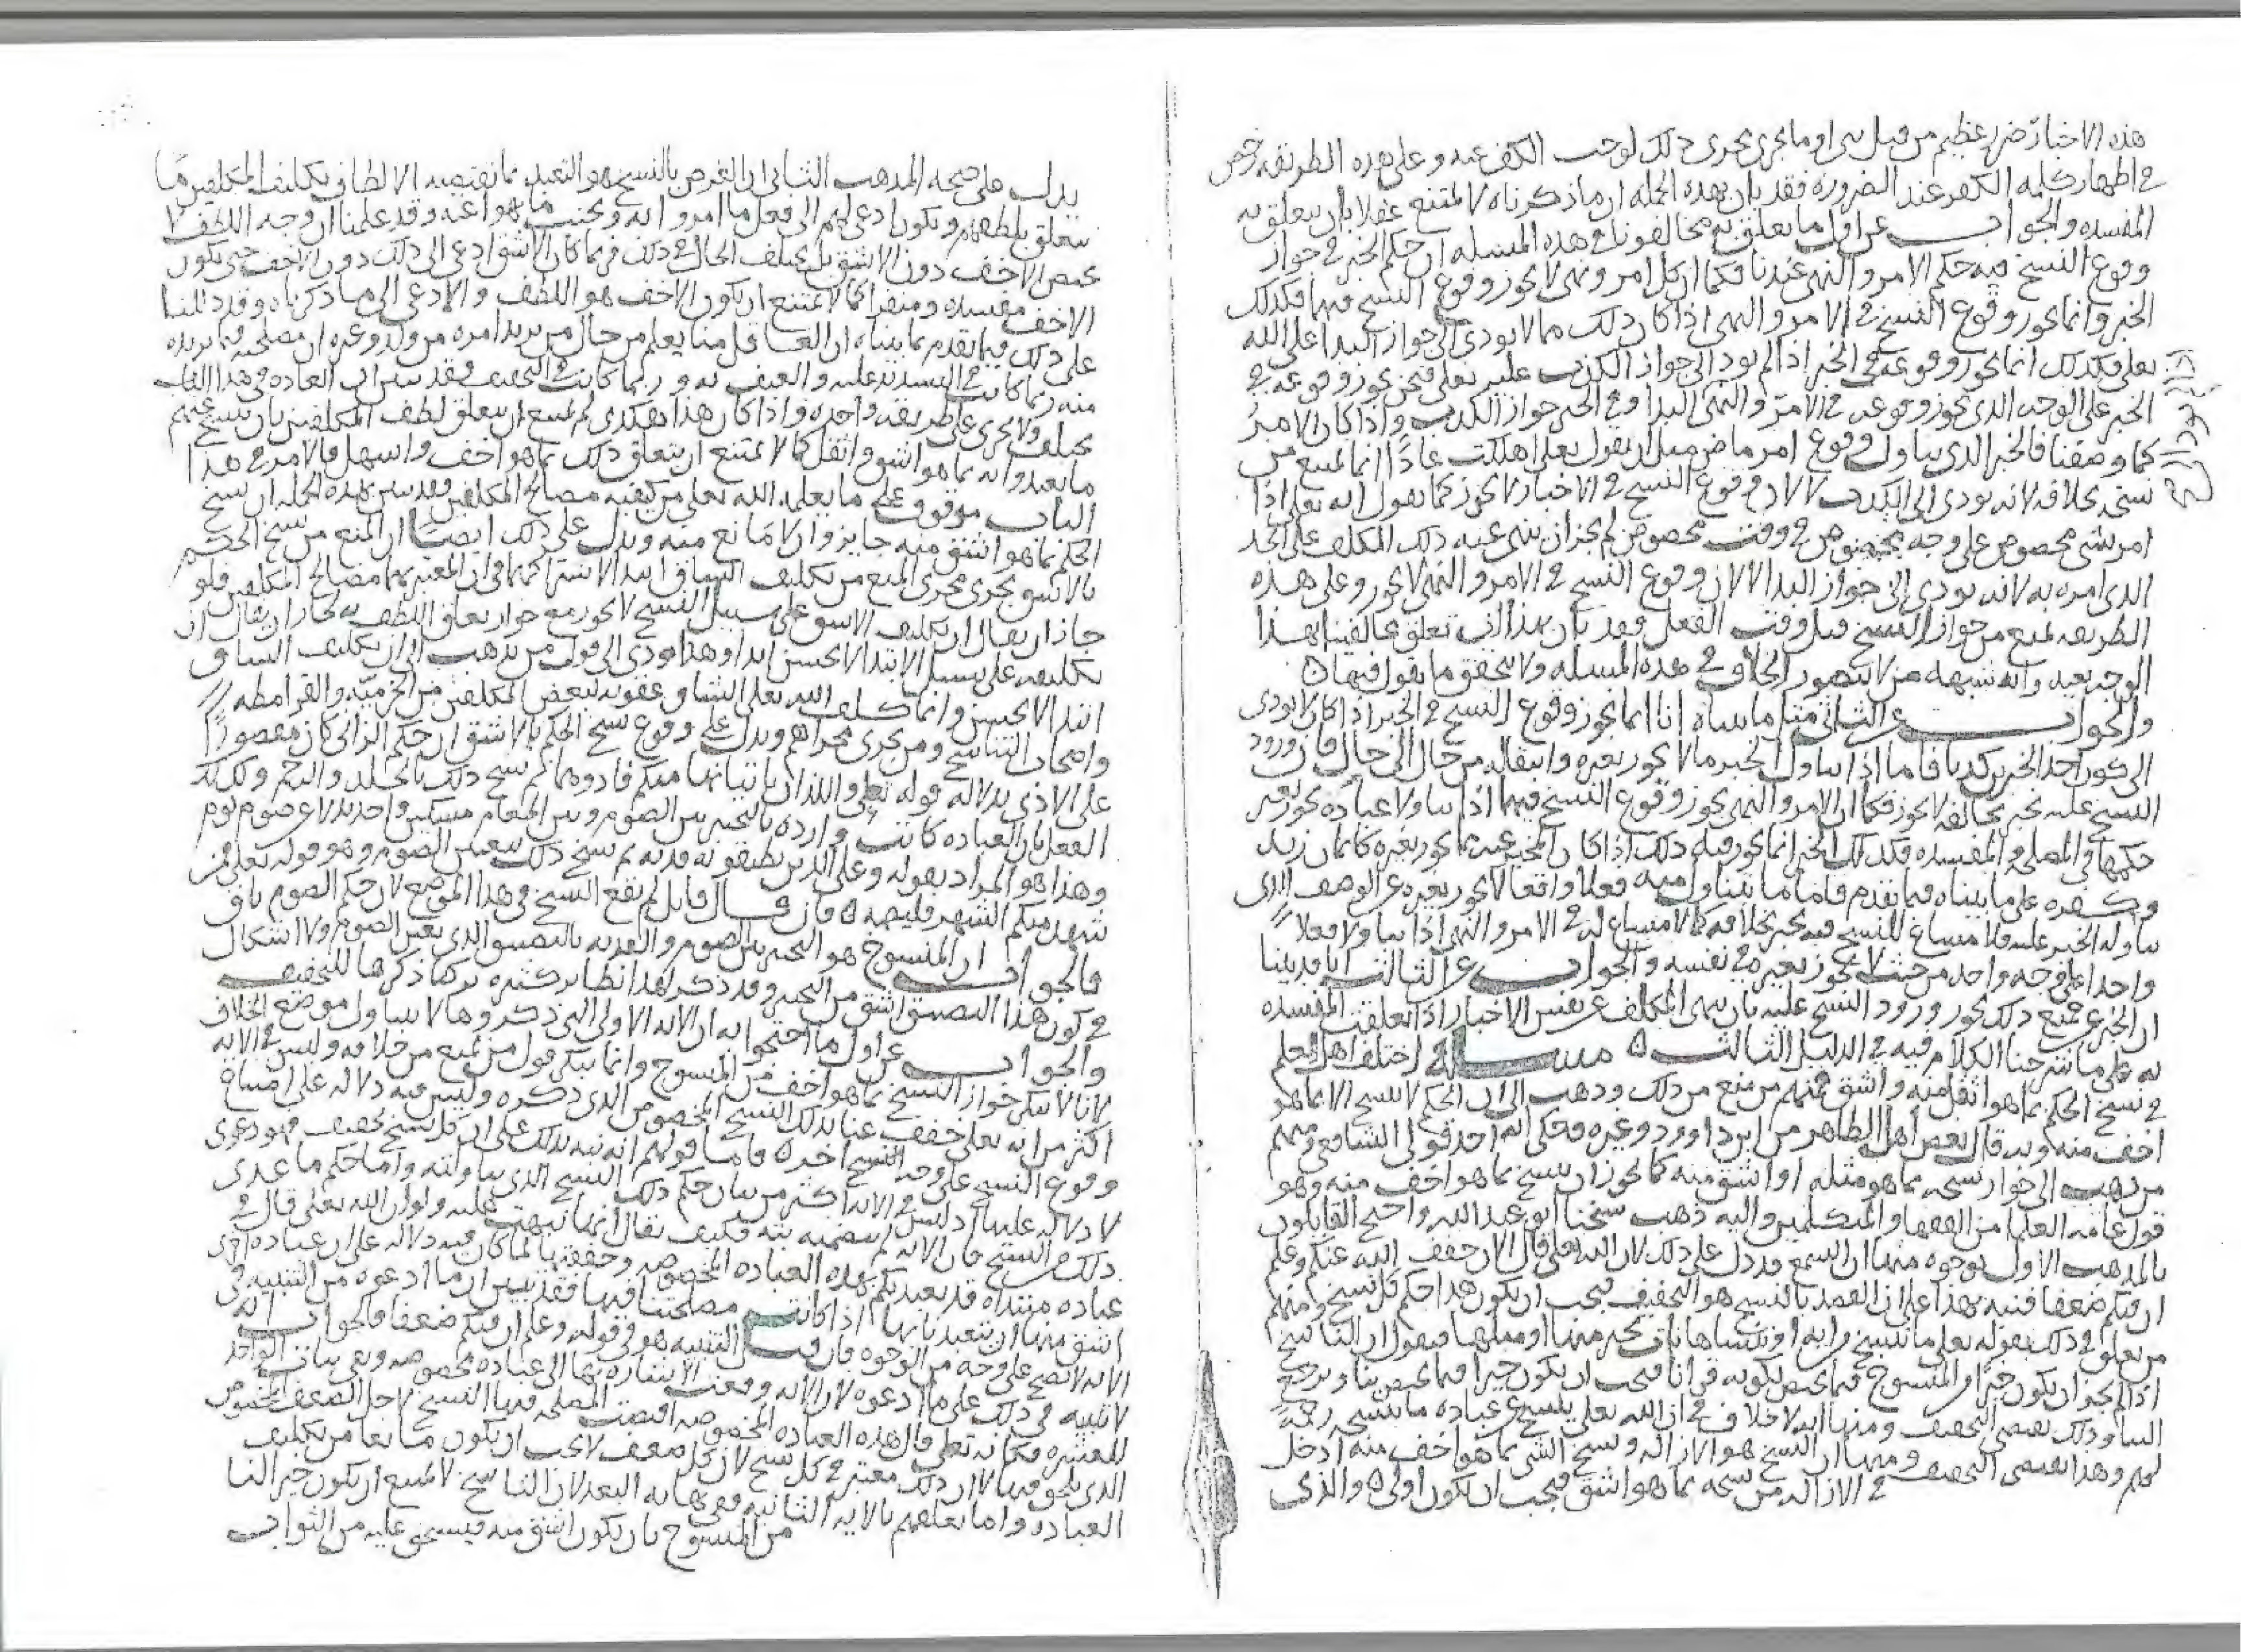 هذه الاخبار ضرر عظيم من قبل نبي او ما يجري مجرى ذلك لوجب الكف عنه وعلى هذه الطريقه رخص
في اظهار كلمه الكفر عند الضروره فقد بان بهذه الجمله ان ما ذكرناه لا يمتنع عقلا بان يتعلق به
المفسده والجواب عن اول ما يتعلق به مخالفونا في هذه المسله ان حكم الخبر في جواز
وقوع النسخ فيه حكم الامر والنهي عندنا فكما ان كل امر ونهي لا يجوز وقوع النسخ فيهما فكذلك
الخبر وانما يجوز وقوع النسخ في الامر والنهي اذا كان ذلك مما لا يودي الى جواز البدا على الله
تعلى فكذلك انما يجوز وقوعه في الخبر اذا لم يود الى جواز الكذب عليه تعلى فنحن نجوز وقوعه في
الخبر على الوجه الذي نجوز وقوعه في الامر والنهي البدا وفي الخبر جواز الكذب واذا كان الامر
كما وصفنا فالخبر الذي يتناول وقوع امر ماض مثل ان يقول تعلى اهلكت عادا انما يمتنع من
نسخه بخلافه لانه يودي الى الكذب لا لان وقوع النسخ في الاخبار لا يجوز كما نقول انه تعلى اذا
امر بشي مخصوص على وجه مخصوص في وقت مخصوص لم يجز ان ينهى عنه ذلك المكلف على الحد
الذي امره به لانه يودي الى جواز البدا لا لان وقوع النسخ في الامر والنهي لا يجوز وعلى هذه
الطريقه نمنع من جواز النسخ قبل وقت الفعل فقد بان بهذا ان تعلق مخالفينا بهذا
الوجه بعيد وانه شبهه من لا يتصور الخلاف في هذه المسله ولا يتحقق ما يقول فيها
والجواب عن الثاني مثل ما بيناه انا انما نجوز وقوع النسخ في الخبر اذا كان لا يودي
الى كون احد الخبرين كذبا فاما اذا تناول الخبر ما لا يجوز تغيره وانتقاله من حال الى حال فان ورود
النسخ عليه بخبر يخالفه لا يجوز فكما ان الامر والنهي يجوز وقوع النسخ فيهما اذا تناولا عباده يجوز تغير
حكمها في المصلحه والمفسده فكذلك الخبر انما يجوز فيه ذلك اذا كان المخبر عنه مما يجوز تغيره كايمان زيد
وكفره على ما بيناه فيما تقدم فاما ما يتناول منه فعلا واقعا لا يجوز تغيره عن الوصف الذي
تناوله الخبر عليه فلا مساغ للنسخ فيه بخبر بخلافه كما لا مساغ له في الامر والنهي اذا تناولا فعلا
واحدا على وجه واحد من حيث لا يجوز تغيره في نفسه والجواب عن الثالث انا قد بينا
ان الخبر عن جميع ذلك يجوز ورود النسخ عليه بان ينهى المكلف عن نفس الاخبار اذا تعلقت المفسده
به على ما شرحنا الكلام فيه في الدليل الثالث مسله اختلف اهل العلم
في نسخ الحكم بما هو اثقل منه واشق فمنهم من منع من ذلك وذهب الى ان الحكم لا ينسخ الا بما هو
اخف منه وبه قال بعض اهل الظاهر من ابن داوود وغيره وحكي انه احد قولي الشافعي ومنهم
من ذهب الى جواز نسخه بما هو مثله او اشق منه كما يجوز ان ينسخ بما هو اخف منه وهو
قول عامه العلما من الفقها والمتكلمين واليه ذهب شيخنا ابو عبد الله واحتج القايلون
بالمذهب الاول بوجوه منها ان السمع قد دل على ذلك لان الله تعلى قال الان خفف الله عنكم وعلم
ان فيكم ضعفا فنبه بهذا على ان القصد بالنسخ هو التخفيف فيجب ان يكون هذا حكم كل نسخ ومنهم
من يعلق في ذلك بقوله تعلى ما ننسخ من ايه او ننساها نات بخير منها او مثلها فيقول ان الناسخ
اذا لم يجز ان يكون خيرا من المنسوخ فيما يختص بكونه قرانا فيجب ان يكون خيرا فيما يختص بنا ويرجع
الينا وذلك يقتضي التخفيف ومنها انه لا خلاف في ان الله تعلى ينسخ عن عباده ما ينسخه رحمة
لهم وهذا يقتضي التخفيف ومنها ان النسخ هو الازاله ونسخ الشي بما هو اخف منه ادخل
في الازاله من نسخه بما هو اشق فيجب ان يكون اولى والذي
يدل على صحه المذهب الثاني ان الغرض بالنسخ هو التعبد بما تقتضيه الالطاف بتكليف المكلفين ما
يتعلق بلطفهم ويكون ادعى لهم الى فعل ما امروا به وتجنب ما نهوا عنه وقد علمنا ان وجه اللطف لا
يختص الاخف دون الاشق بل يختلف الحال في ذلك فربما كان الاشق ادعى الى ذلك دون الاخف حتى يكون
الاخف مفسده ومنفرا كما لا يمتنع ان يكون الاخف هو اللطف والادعى الى ما ذكرناه وقد دللنا
على ذلك فيما تقدم بما بيناه ان العاقل منا يعلم من حال من يريد امره من ولد وغيره ان مصلحته فيما يريده
منه ربما كانت في التشديد عليه والعنف به وربما كانت في التخفيف فقد تبين ان العاده في هذا الباب
تختلف ولا تجري على طريقه واحده واذا كان هذا هكذى لم يمتنع ان يتعلق لطف المكلفين بان ينسخ عنهم
ما تعبدوا به بما هو اشق واثقل كما لا يمتنع ان يتعلق ذلك بما هو اخف واسهل فالامر في هذا
الباب موقوف على ما يعلمه الله تعلى من كيفيه مصالح المكلفين فقد تبين بهذه الجمله ان نسخ
الحكم بما هو اشق منه جايز وان لا مانع منه ويدل على ذلك ايضا ان المنع من نسخ الحكم
بالاشق يجري مجرى المنع من تكليف الشاق ابتدا لاشتراكهما في ان المعتبر بهما مصالح المكلفين فلو
جاز ان يقال ان تكليف الاشق على سبيل النسخ لا يجوز مع جواز تعلق اللطف به لجاز ان يقال ان
تكليفه على سبيل الابتدا لا يحسن ابدا وهذا يودي الى قول من يذهب الى ان تكليف الشاق
ابتدا لا يحسن وانما كلف الله تعلى الشاق عقوبه لبعض المكلفين من الخرميه والقرامطه
واصحاب التناسخ ومن يجري مجراهم ويدل على وقوع نسخ الحكم بالاشق ان حكم الزاني كان مقصورا
على الاذى بدلاله قوله تعلى واللذان ياتيانها منكم فاذوهما ثم نسخ ذلك بالجلد والرجم وكذلك
الفعل بان العباده كانت وارده بالتخيير بين الصوم وبين اطعام مسكين واحد بدلا عن صوم يوم
وهذا هو المراد بقوله وعلى الذين يطيقونه فديه ثم نسخ ذلك بتعيين الصوم وهو قوله تعلى فمن
شهد منكم الشهر فليصمه فان قال قايل لم يقع النسخ في هذا الموضع لان حكم الصوم باق
فالجواب ان المنسوخ هو التخيير بين الصوم والفديه بالتضييق الذي يعين الصوم ولا اشكال
في كون هذا التضييق اشق من التخيير وقد ذكر لهذا نظاير كثيره تركنا ذكرها للتخفيف
والجواب عن اول ما احتجوا به ان الايه الاولى التي ذكروها لا تتناول موضع الخلاف
لانا لا ننكر جواز النسخ بما هو اخف من المنسوخ وانما ننكر قول من يمنع من خلافه وليس في الايه
اكثر من انه تعلى خفف عنا بذلك النسخ المخصوص الذي ذكره وليس فيه دلاله على امتناع
وقوع النسخ على وجه اخر فاما قولهم انه نبه بذلك على ان كل نسخ تخفيف فهو دعوى
لا دلاله عليها اذ ليس في الايه اكثر من بيان حكم ذلك النسخ الذي تناولته واما حكم ما عدى
ذلك من النسخ فان الايه لم تتضمنه بته فكيف يقال انها نبهت عليه ولو ان الله تعلى قال في
عباده مبتداه قد تعبدتكم بهذه العباده المخصوصه وخففتها لما كان فيه دلاله على ان عباده اخرى
اشق منها ان يتعبدنا بها اذا كانت مصلحتنا فيها فقد تبين ان ما ادعوه من التنبيه في
الايه لا يصح على وجه من الوجوه فان قيل التنبيه هو في قوله وعلم ان فيكم ضعفا فالجواب انه
لا تنبيه في ذلك على ما ادعوه لان الايه وقعت الاشاره بها الى عباده مخصوصه وهي ثبات الواحد
للعشره فكانه تعلى قال هذه العباده المخصوصه اقتضت المصلحه فيها النسخ لاجل الضعف المخصوص
الذي يلحق فيها لا ان ذلك معتبر في كل نسخ لان كل ضعف لا يجب ان يكون مانعا من تكليف
العباده واما تعلقهم بالايه الثانيه ففي نهايه البعد لان الناسخ لا يمتنع ان يكون خيرا لنا
من المنسوخ بان يكون اشق منه فيستحق عليه من الثواب